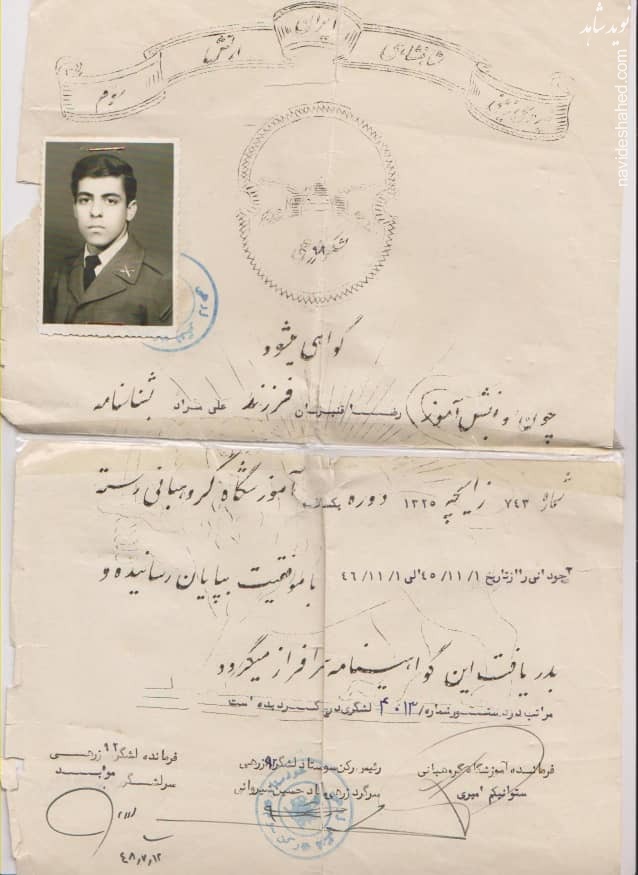 ارتش
شاهنشاهی
ایران
سوم
لشگر ۹۲ زرهی
گواهی میشود
چون دانش آموز رضا قنبریان فرزند علی مراد بشناسنامه
شماره ۷۴۳ زایچه ۱۳۲۵ دوره یکساله آموزشگاه گروهبانی رسته
را از تاریخ ۴۵/۱۱/۱ الی ۴۶/۱۱/۱ با موفقیت بپایان رسانیده و
بدریافت این گواهینامه سرافراز میگردد
مراتب در دستور شماره ۴۰۱۳ لشگری درج گردیده است
فرمانده آموزشگاه گروهبانی
ستوانیکم امیری
رئیس رکن سوستاد لشگر ۹۲ زرهی
سرگرد زرهی حسین شیروانی
فرمانده لشگر ۹۲ زرهی
سرلشگر موبد
۴۸/۷/۱۲
نوید شاهد
navideshahed.com